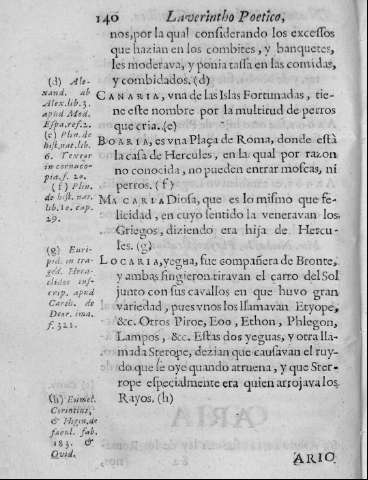 140 Laverintho Poetico,
nos, por la qual considerando los excessos
que hazian en los combites, y banquetes,
les moderava, y ponia tassa en las comidas,
y combidados. (d)
CANARIA, vna de las Islas Fortunadas, tie-
ne este nombre por la multitud de perros
que cria. (e)
BOARIA, es vna Plaça de Roma, donde està
la casa de Hercules, en la qual por razon
no conocida, no pueden entrar moscas, ni
perros. (f)
MACARIA Diosa, que es lo mismo que fe-
licidad, en cuyo sentido la veneravan los
Griegos, diziendo era hija de Hercu-
les. (g)
LOCARIA, yegua, fue compañera de Bronte,
y ambas fingieron tiravan el carro del Sol
junto con sus cavallos en que huvo gran
variedad, pues vnos los llamavan Etyope,
&c. Otros Piroe, Eoo, Ethon, Phlegon,
Lampos, &c. Estas dos yeguas, y otra lla-
mada Sterope, dezian que causavan el ruy-
do que se oye quando atruena, y que Ster-
rope especialmente era quien arrojava los
Rayos. (h)
ARIO
(d) Ale-
xand. ab
Alex. lib. 3.
apud Mod.
Espa. ref. 2.
(e) Plin. de
hist. nat. lib.
6. Textor
in cornuco-
pia. f. 20.
(f) Plin.
de hist. nat.
lib. 10. cap.
29.
(g) Euri-
pid. in tra-
gœd. Hera-
clides ins-
crip. apud
Carth. de
Deor. ima.
f. 321.
(h) Eumel.
Corintius,
& Higin. de
faoul. fab.
183. &
Ovid.